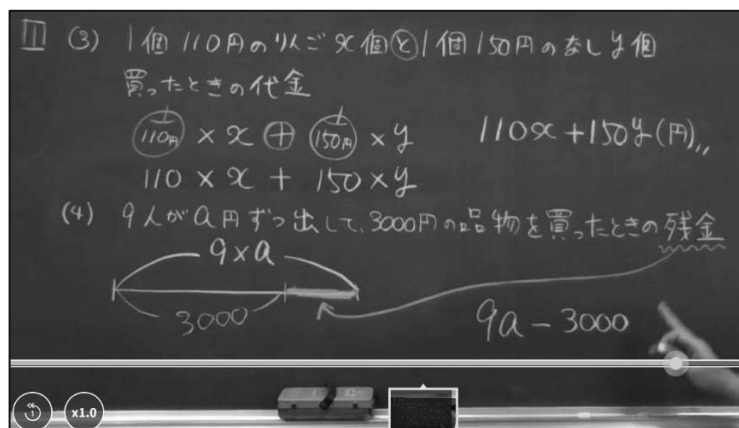 1 (3) 1個110円のりんごx個と1個150円のなしy個
買ったときの代金
110円 × x + 150円 × y 110x+150y(円)
110 × x + 150 × y
(4) 9人がa円ずつ出して、3000円の品物を買ったときの残金
9×a
3000
9a-3000
1
x1.0